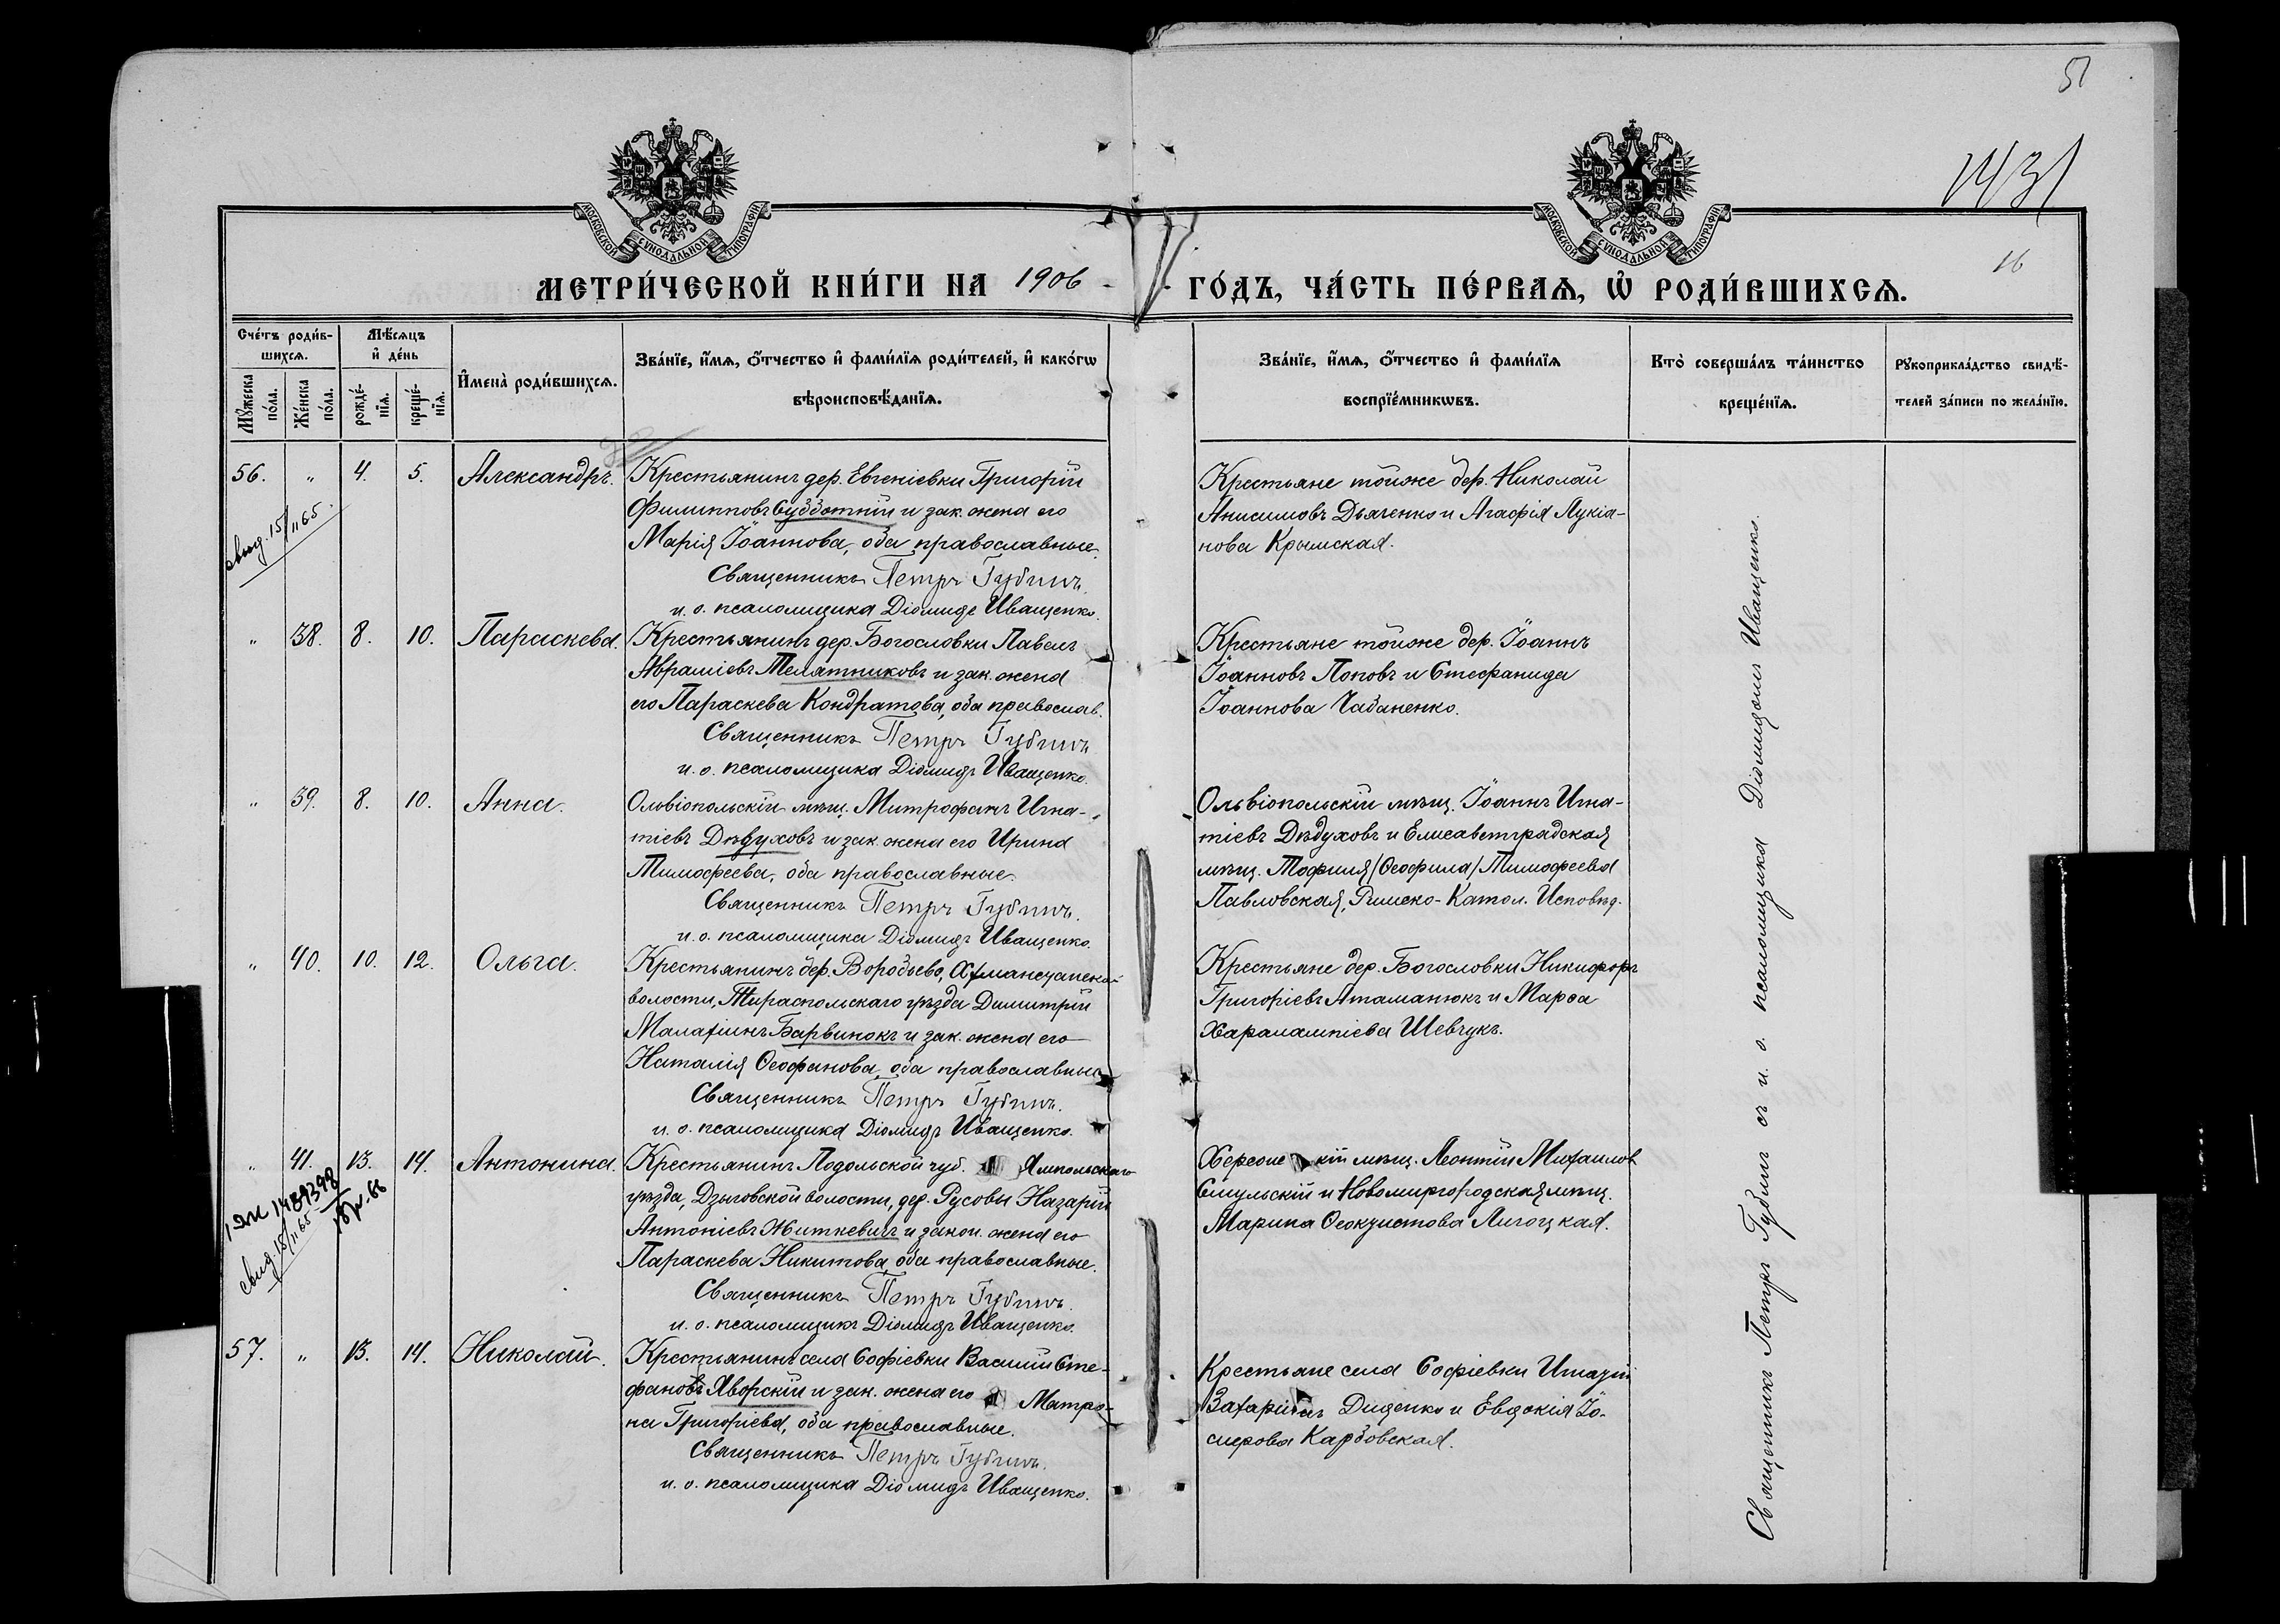 51
1431
16
МОСКОВСКОЙ СУНОДАЛЬНОЙ ТИПОГРАФІИ
МОСКОВСКОЙ СУНОДАЛЬНОЙ ТИПОГРАФІИ
МЕТРИ́ЧЕСКОЙ КНИ́ГИ НА 1906
ГО́ДЪ, ЧА́СТЬ ПЕ́РВАѦ, Ѡ҆ РОДИ́ВШИХСѦ.
Сче́тъ роди́в-
шихсѧ.
Мꙋ́жеска по́ла.
Же́нска по́ла.
Мѣ́сѧцъ
и҆ де́нь
рожде́-
нїѧ.
креще́-
нїѧ.
И҆мена̀ роди́вшихсѧ.
Зва́нїе, и҆́мѧ, ѻ҆́тчество и҆ фами́лїѧ роди́телей, и҆ како́гѡ
вѣроисповѣ́данїѧ.
Зва́нїе, и҆́мѧ, ѻ҆́тчество и҆ фами́лїѧ
воспрїе́мникѡвъ.
Кто̀ соверша́лъ та́инство
креще́нїѧ.
Рꙋкоприкла́дство свидѣ́-
телей за́писи по жела́нїю.
56. " 4. 5. Александръ.
свид. 15/II 65.
Крестьянинъ дер. Евгеніевки Григорій
Филипповъ Субботній и зак. жена его
Марія Іоаннова, оба православные.
Священникъ Петръ Губинъ.
и. о. псаломщика Діомидъ Иващенко.
Крестьяне тойже дер. Николай
Анисимовъ Дьяченко и Агафія Лукіа-
нова Крымская.
" 38. 8. 10. Параскева.
Крестьянинъ дер. Богословки Павелъ
Авраміевъ Телятниковъ и зак. жена
его Параскева Кондратова, оба православ.
Священникъ Петръ Губинъ
и. о. псаломщика Діомидъ Иващенко.
Крестьяне тойже дер. Іоаннъ
Іоанновъ Поповъ и Стефанида
Іоаннова Чабаненко.
" 39. 8. 10. Анна.
Ольвіопольскій мѣщ. Митрофанъ Игна-
тіевъ Дѣдуховъ и зак. жена его Ирина
Тимофеева, оба православные.
Священникъ Петръ Губинъ.
и. о. псаломщика Діомидъ Иващенко.
Ольвіопольскій мѣщ. Іоаннъ Игна-
тіевъ Дѣдуховъ и Елисаветградская
мѣщ. Тофиля /Ѳеофила/ Тимофеева
Павловская, Римско-Катол. Исповѣд.
" 40. 10. 12. Ольга.
Крестьянинъ дер. Воробьево,
волости, Тираспольскаго уѣзда Димитрій
Малахіинъ Барвинокъ и зак. жена его
Наталія Ѳеофанова, оба православные
Священникъ Петръ Губинъ.
и. о. псаломщика Діомидъ Иващенко.
Крестьяне дер. Богословки Никифоръ
Григоріевъ Атаманюкъ и Марѳа
Харалампіева Шевчукъ.
" 41. 13. 14. Антонина.
1489398
свид. 15/II 65
Крестьянинъ Подольской губ. Ямпольскаго
уѣзда, Дзыговской волости, дер. Русовы Назарій
Антоніевъ Житкевичъ и закон. жена его
Параскева Никитова, оба православные.
Священникъ Петръ Губинъ.
и. о. псаломщикъ Діомидъ Иващенко.
Херсонскій мѣщ. Леонтій Михаиловъ
Смульскій и Новомиргородская мѣщ.
Марина Ѳеоктистова Лигоцкая.
57. " 13. 14. Николай.
Крестьянинъ села Софіевки Василій Сте-
фановъ Яворскій и зак. жена его Матро-
на Григоріева, оба православные.
Священникъ Петръ Губинъ.
и. о. псаломщика Діомидъ Иващенко.
Крестьяне села Софіевки Игнатій
Захаріинъ Диденко и Евдокія Іо-
сифова Карбовская.
Священникъ Петръ Губинъ съ и. о. псаломщика Діомидомъ Иващенко.